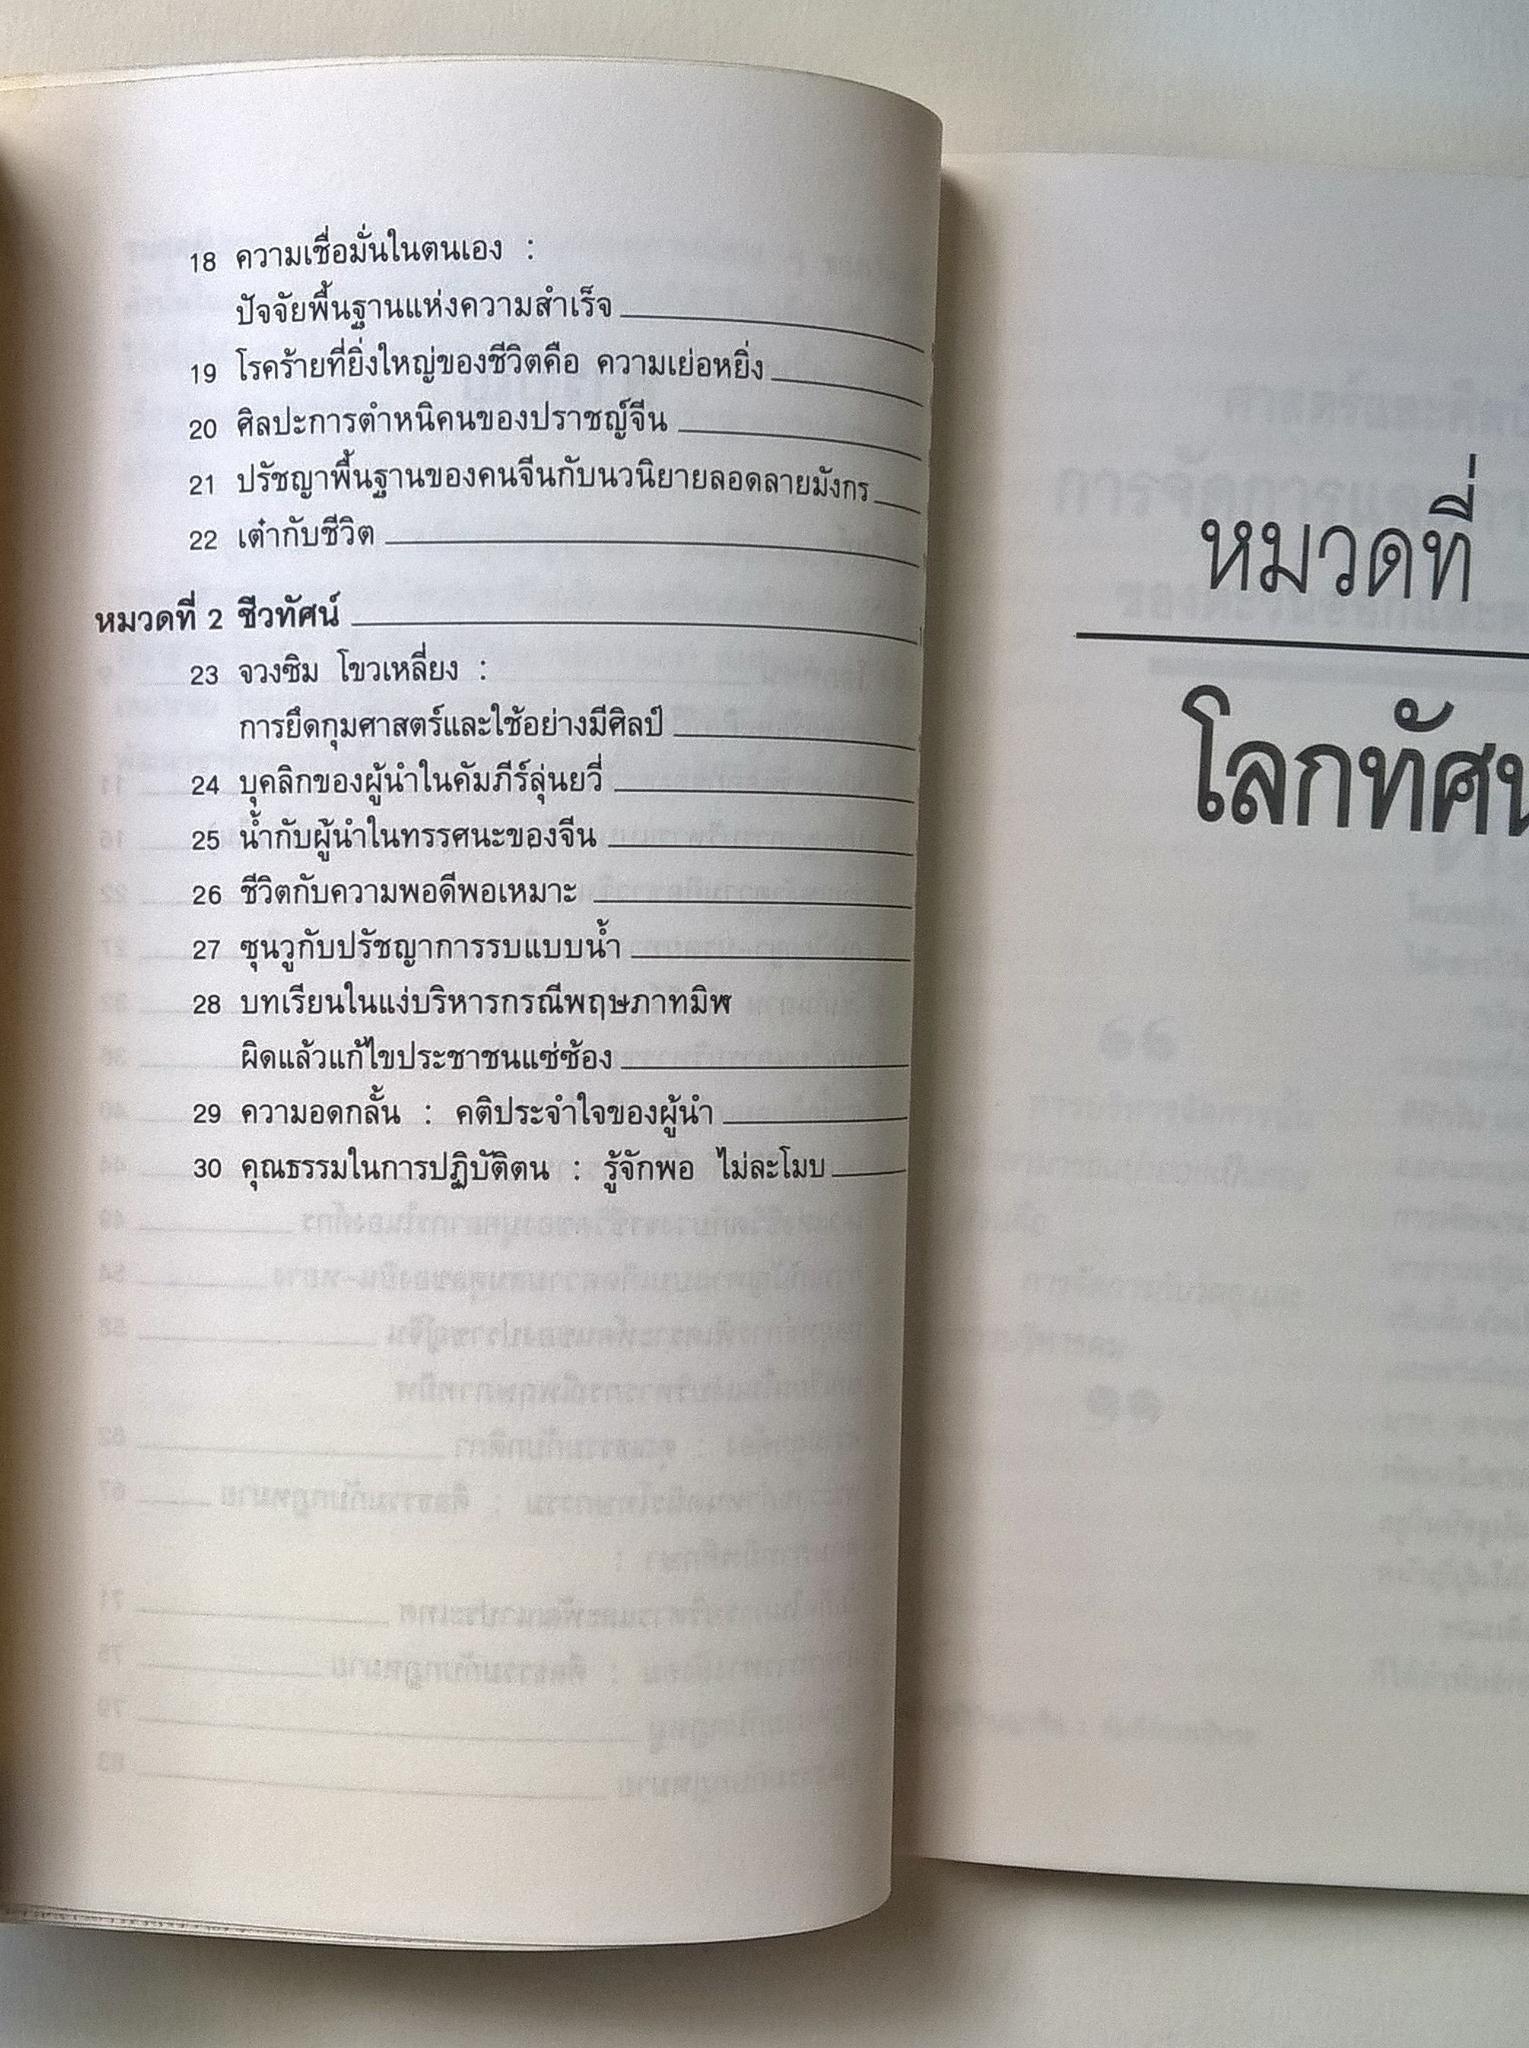 18 ความเชื่อมั่นในตนเอง :
ปัจจัยพื้นฐานแห่งความสำเร็จ
19 โรคร้ายที่ยิ่งใหญ่ของชีวิตคือ ความเย่อหยิ่ง
20 ศิลปะการตำหนิคนของปราชญ์จีน
21 ปรัชญาพื้นฐานของคนจีนกับนวนิยายลอดลายมังกร
22 เต๋ากับชีวิต
หมวดที่ 2 ชีวทัศน์
23 จวงซิม โขวเหลี่ยง :
การยึดกุมศาสตร์และใช้อย่างมีศิลป์
24 บุคลิกของผู้นำในคัมภีร์ลุ่นยวี่
25 น้ำกับผู้นำในทรรศนะของจีน
26 ชีวิตกับความพอดีพอเหมาะ
27 ซุนวูกับปรัชญาการรบแบบน้ำ
28 บทเรียนในแง่บริหารกรณีพฤษภาทมิฬ
ผิดแล้วแก้ไขประชาชนแซ่ซ้อง
29 ความอดกลั้น : คติประจำใจของผู้นำ
30 คุณธรรมในการปฏิบัติตน : รู้จักพอ ไม่ละโมบ
หมวดที่
โลกทัศน